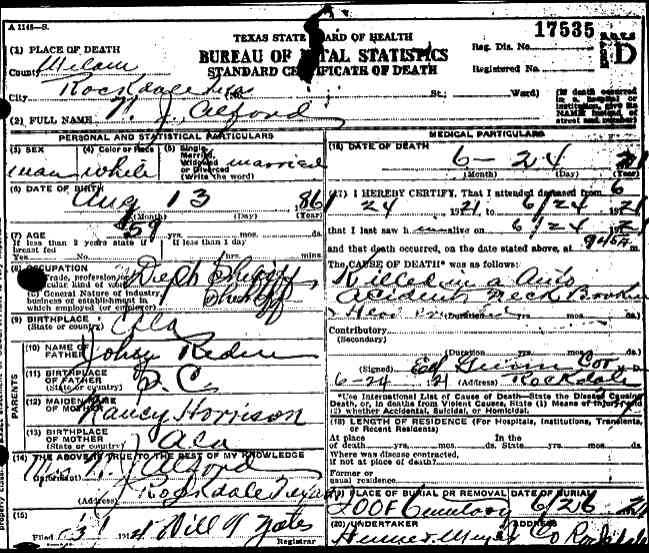 A 1146—S.
TEXAS STATE BOARD OF HEALTH
17535
(1) PLACE OF DEATH
BUREAU OF VITAL STATISTICS
Reg. Dis. No.
D
County Milam
STANDARD CERTIFICATE OF DEATH
Registered No.
City Rockdale Texas (No. St.; Ward)
(If death occurred in a hospital or institution, give its NAME instead of street and number)
(2) FULL NAME N. J. Alford
PERSONAL AND STATISTICAL PARTICULARS
(3) SEX man
(4) Color or Race white
(5) Single, Married, Widowed or Divorced (Write the word) married
(6) DATE OF BIRTH Aug 13 1861
(Month) (Day) (Year)
(7) AGE 59 yrs. mos. ds.
If less than 2 years state if breast fed Yes No
If less than 1 day hrs. mins.
(8) OCCUPATION
(a) Trade, profession, particular kind of work
(b) General Nature of industry, business or establishment in which employed (or employer)
Sheriff
(9) BIRTHPLACE (State or country) Ala
PARENTS
(10) NAME OF FATHER
(11) BIRTHPLACE OF FATHER (State or country) S. C.
(12) MAIDEN NAME OF MOTHER Nancy Horrison
(13) BIRTHPLACE OF MOTHER (State or country) Ala
(14) THE ABOVE IS TRUE TO THE BEST OF MY KNOWLEDGE
(Informant) Mrs N. J. Alford
(Address) Rockdale Texas
(15)
Filed 191 Will H Yates
Registrar
MEDICAL PARTICULARS
(16) DATE OF DEATH
6 - 24 21
(Month) (Day) (Year)
(17) I HEREBY CERTIFY, That I attended deceased from 6
24 1921 to 6/24 1921
that I last saw h alive on 6/24 1921
and that death occurred, on the date stated above, at 945 M.
The CAUSE OF DEATH* was as follows:
Killed in a Auto
Accident Neck Broken
Head
(Duration) yrs. mos. ds.
Contributory
(Secondary)
(Duration) yrs. mos. ds.
(Signed) Ed M. D.
6-24 21 (Address) Rockdale
*Use International List of Cause of Death—State the Disease Causing Death, or, in deaths from Violent Causes, State (1) Means of Injury; and (2) whether Accidental, Suicidal, or Homicidal.
(18) LENGTH OF RESIDENCE (For Hospitals, Institutions, Transients, or Recent Residents)
At place of death yrs. mos. ds.
In the State yrs. mos. ds.
Where was disease contracted, if not at place of death?
Former or usual residence
(19) PLACE OF BURIAL OR REMOVAL DATE OF BURIAL
IOOF Cemetery 6/26 21
(20) UNDERTAKER ADDRESS
Co Rockdale